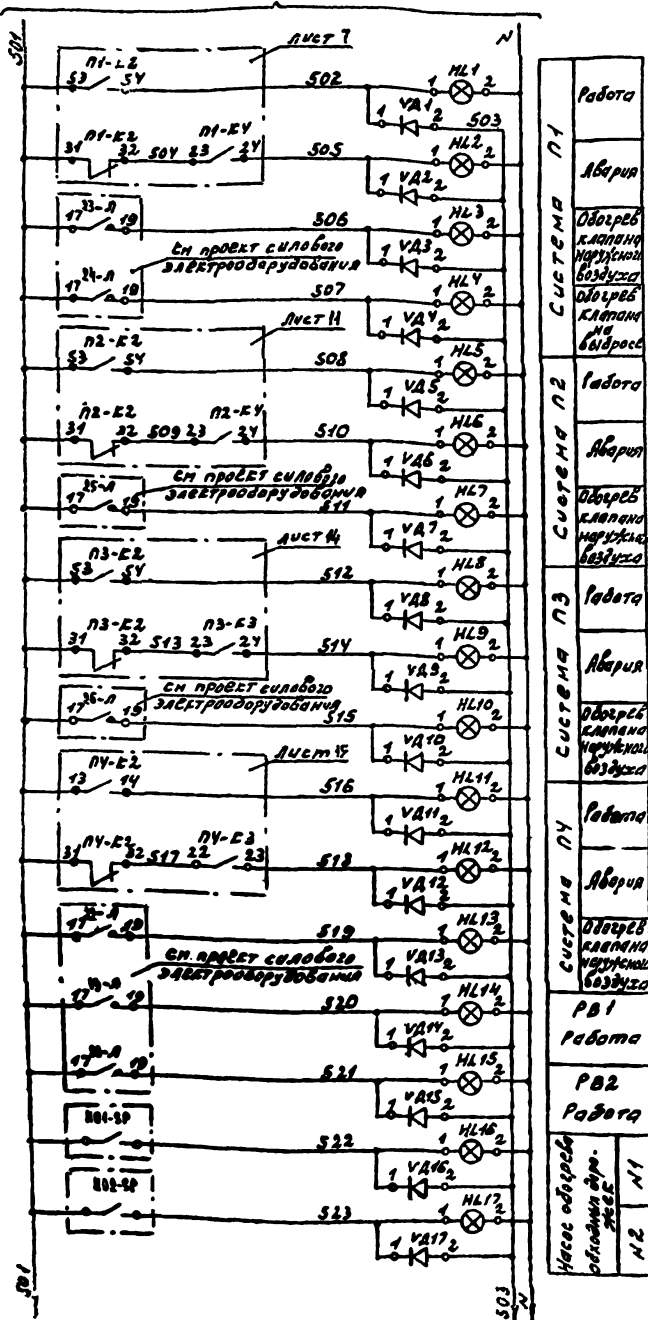 501
N
Лист 7
П1-К2
53 54
502
1 HL1 2
1 VД1 2
503
П1-К2
П1-К4
31 32 504 23 24
505
1 HL2 2
1 VД2 2
23-Л
17 19
506
1 HL3 2
1 VД3 2
см проект силового
электрооборудования
24-Л
17 18
507
1 HL4 2
1 VД4 2
Лист 11
П2-К2
53 54
508
1 HL5 2
1 VД5 2
П2-К2
П2-К4
31 32 509 23 24
510
1 HL6 2
1 VД6 2
см проект силового
электрооборудования
25-Л
17 19
511
1 HL7 2
1 VД7 2
Лист 14
П3-К2
53 54
512
1 HL8 2
1 VД8 2
П3-К2
П3-К3
31 32 513 23 24
514
1 HL9 2
1 VД9 2
см проект силового
электрооборудования
26-Л
17 19
515
1 HL10 2
1 VД10 2
Лист 15
П4-К2
13 14
516
1 HL11 2
1 VД11 2
П4-К2
П4-К3
31 32 517 22 23
518
1 HL12 2
1 VД12 2
17 19
519
1 HL13 2
1 VД13 2
см. проект силового
электрооборудования
17 19
520
1 HL14 2
1 VД14 2
17 19
521
1 HL15 2
1 VД15 2
522
1 HL16 2
1 VД16 2
523
1 HL17 2
1 VД17 2
501
503
N
Система П1
Работа
Авария
Обогрев
клапана
наружного
воздуха
Обогрев
клапана
на
выбросе
Система П2
Работа
Авария
Обогрев
клапана
наружн.
воздуха
Система П3
Работа
Авария
Обогрев
клапана
наружного
воздуха
Система П4
Работа
Авария
Обогрев
клапана
наружного
воздуха
РВ1
Работа
РВ2
Работа
Насос обогрева
обходных доро-
жек
N1
N2